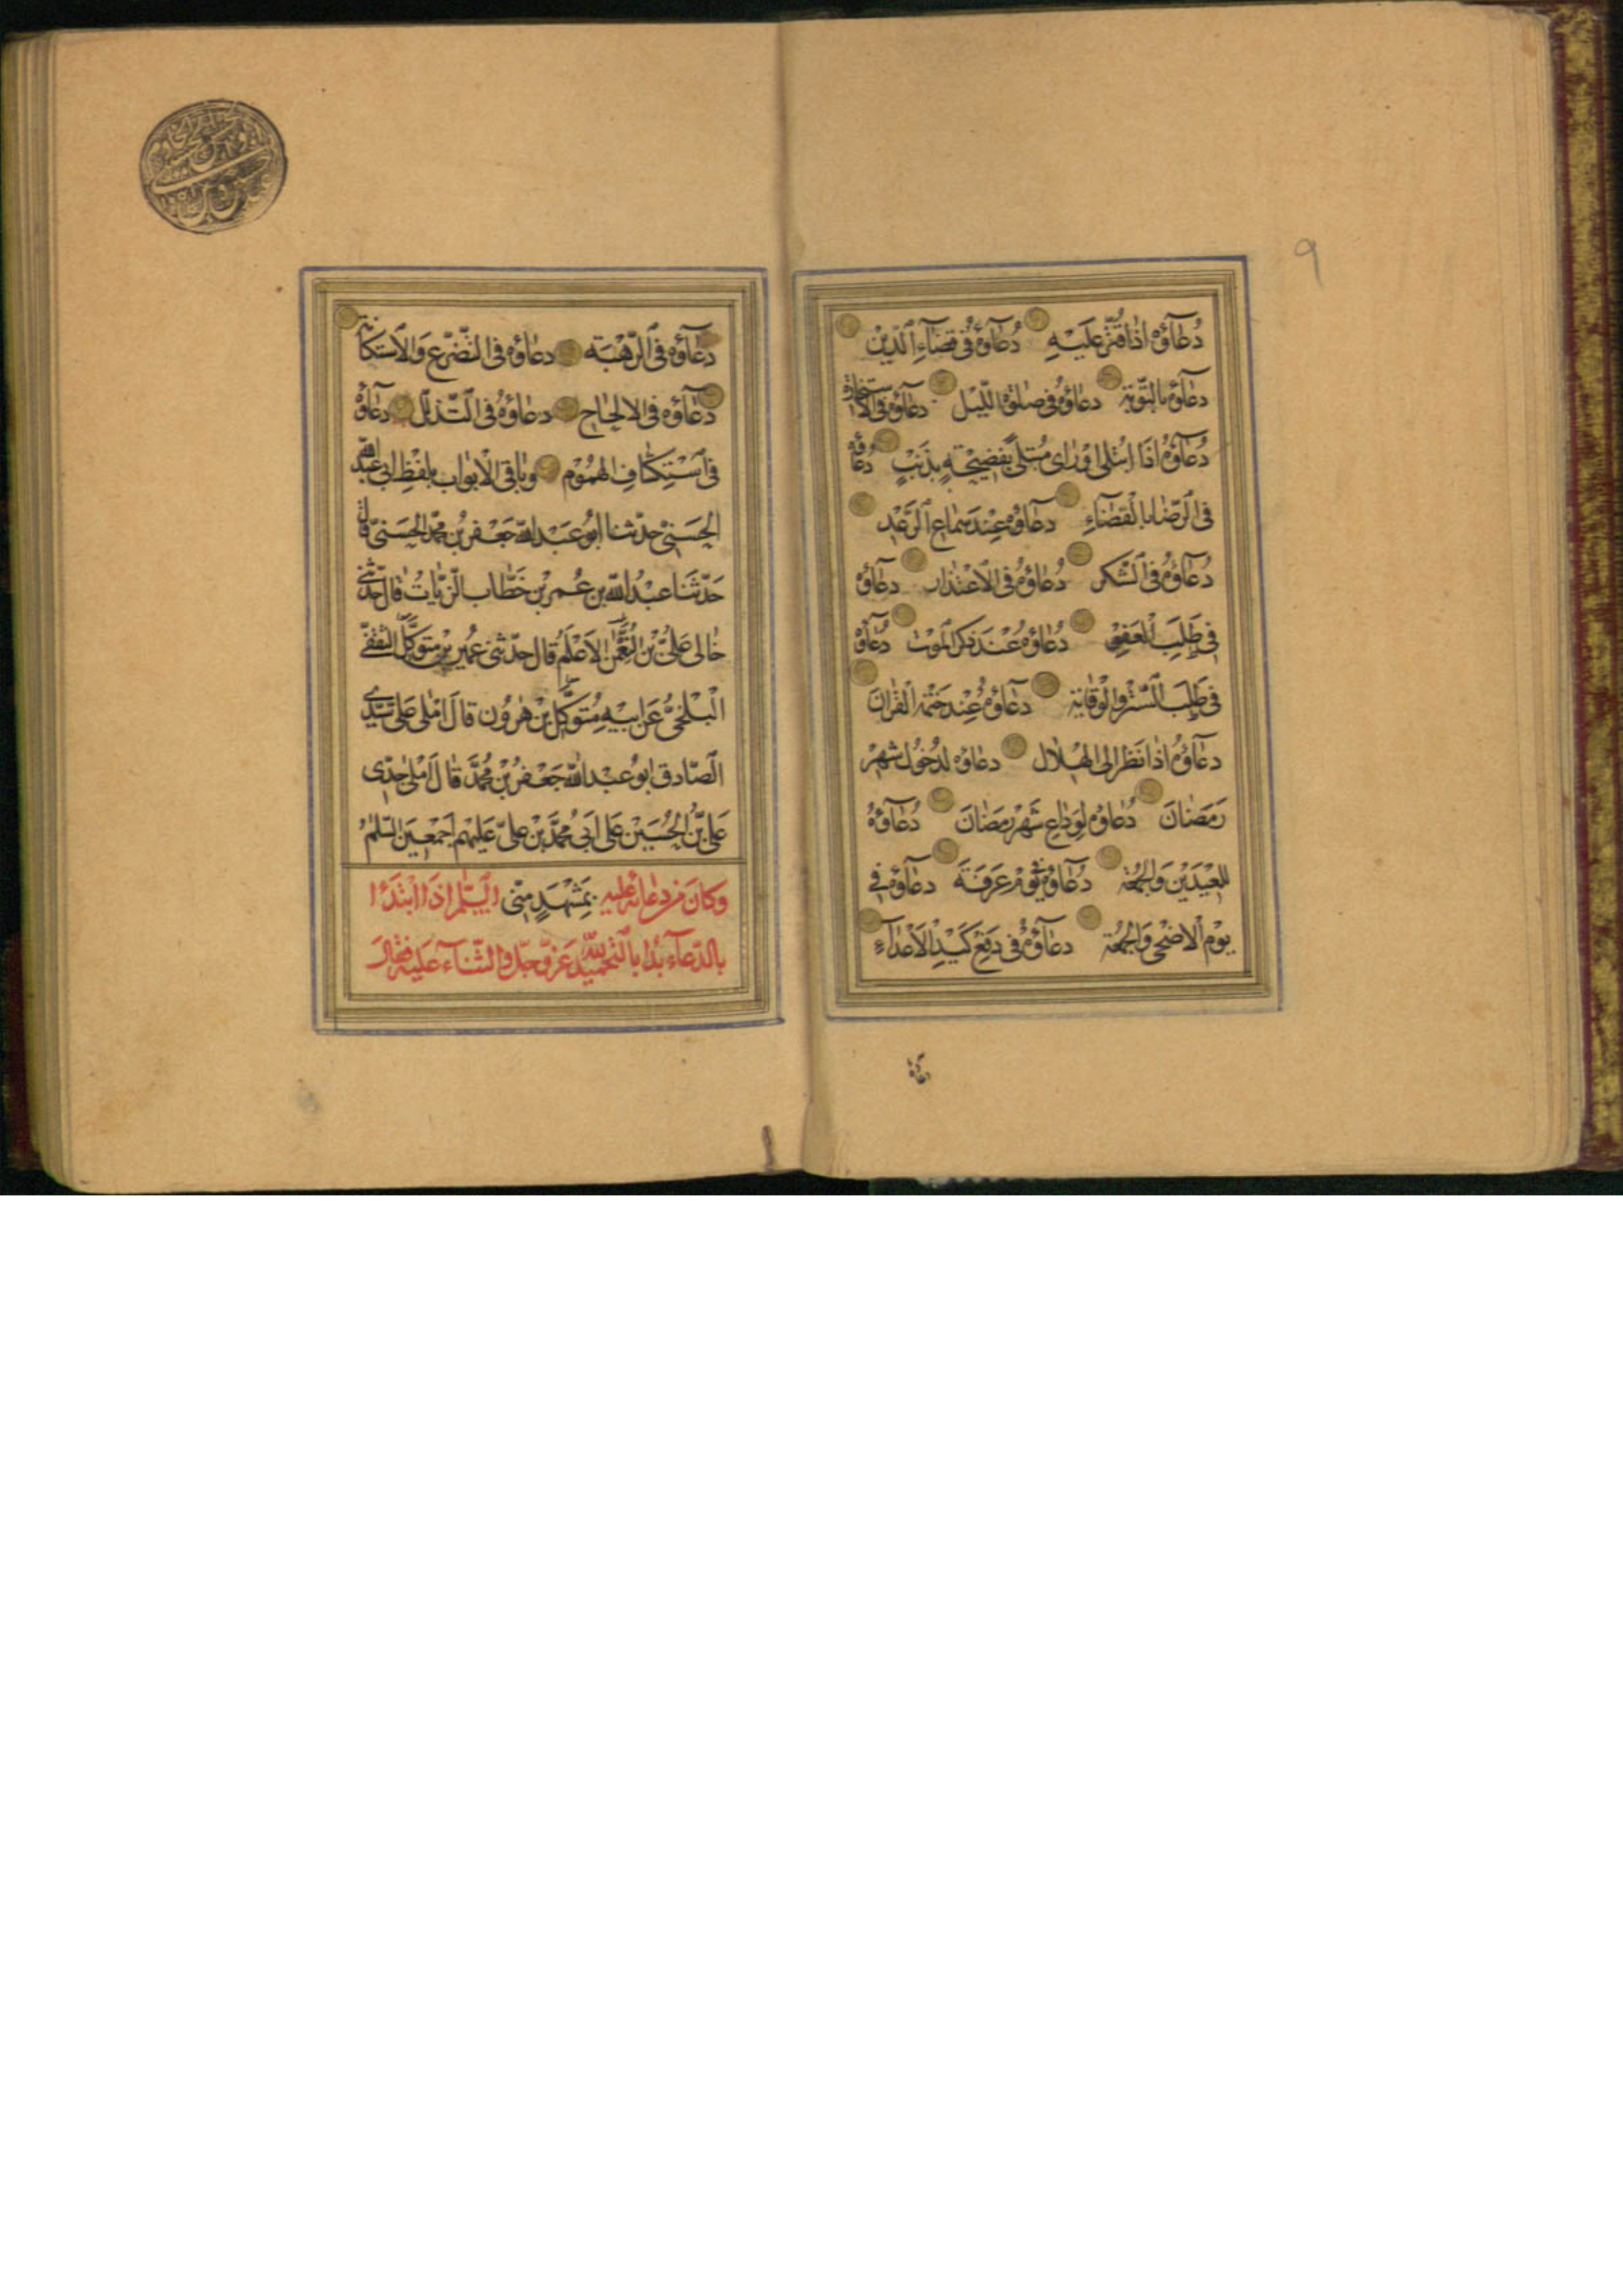 ٩
دُعَاؤُهُ اِذَا قُتِّرَ عَلَيْهِ دُعَاؤُهُ فِي قَضَاءِ الدَّيْنِ
دعاؤه بالتَّوبة دعاؤه في صلوة اللّيل دعاؤه في الاستخارة
دُعَاؤُهُ اِذَا ابْتُلِيَ اَوْ رَاى مُبْتَلىً بِفَضِيحَةٍ بِذَنْبٍ دُعَاؤُهُ
فِي الرِّضَا بِالْقَضَاءِ دعاؤه عِنْدَ سَمَاعِ الرَّعْدِ
دُعَاؤُهُ فِي الشُّكر دُعَاؤُهُ في الاعْتذار دعاؤه
في طَلَبِ الْعَفْوِ دُعَاؤُهُ عِنْدَ ذكر الموت دُعاؤه
في طَلَبِ السِّتْرِ والْوِقاية دُعَاؤُهُ عِنْد خَتْمه القرانَ
دعَاؤُهُ اِذا نَظَر الى الهِلال دعاؤه لِدُخُول شهْر
رَمَضَانَ دُعَاؤُه لِوَدَاعِ شَهْر رَمَضَانَ دُعَاؤهُ
للْعِيدَيْن وَالجُمُعَة دُعَاؤُهُ في يَوْم عَرَفَةَ دعاؤه في
يَوْم الاضْحى وَالجُمُعَة دعَاؤُهُ فى دَفْعِ كَيْدِ الاَعْدَاءِ
دعاؤه
دُعَاؤُهُ في الرَّهْبَة دعاؤه في التَّضَرُّع وَالاستكانة
دعاؤه في الالحاح دعاؤه في التَّذلّل دعاؤه
في اسْتِكْشَافِ الهُمُوم وباقي الابواب بلفظ ابي عبد الله
الحَسَنيّ حدّثنا ابُو عَبْد الله جَعْفر بْن محمّد الحسَنيّ قال
حَدّثَنا عبْدُ الله بن عُمر بْن خَطّاب الزّيّات قال حدّثني
خالى عَليّ بْن النُّعْمن الاَعْلَم قال حدّثني عُمَير بن متوكّل الثقفيّ
الْبَلْخيّ عَن ابيه مُتوكّل بْن هرُون قال امْلى عَلى سَيّدي
الصّادق ابو عبْد الله جَعْفر بْن مُحَمَّد قال اَمْلى جدّى
عَلِيّ بْن الحُسَيْن عَلى ابي مُحمَّد بْن عليّ عليهم اجمعين السّلمُ
وكانَ من دعائه عليه بمَشْهَدٍ مِنّى السّلم اِذَا ابْتَدَا
بالدّعاء بَدَا بالتّحميد لله عَزّ وجلّ والثّناء عَليه فقالَ